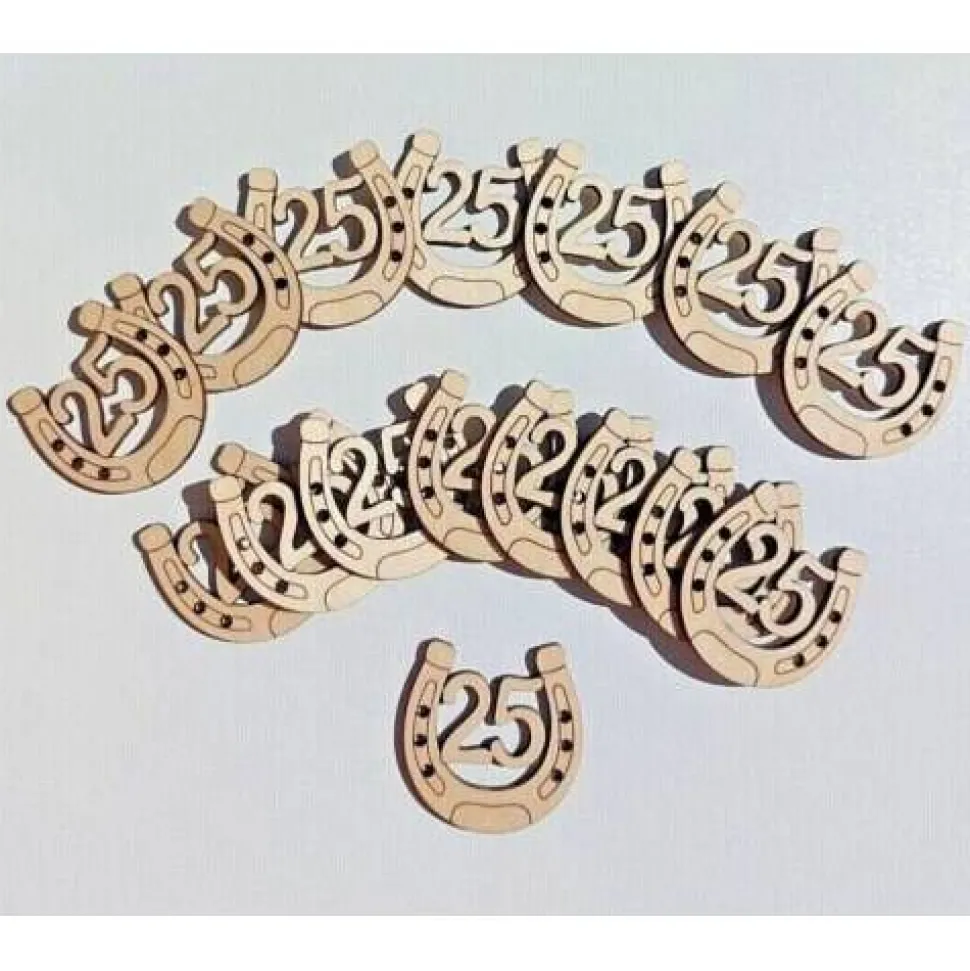 25 25 25 25 25 25 25
2 2 25 2 2 2 2 25
25